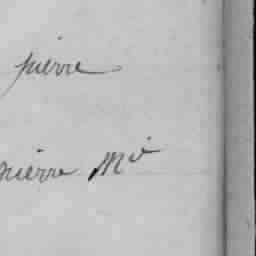 pierre
pierre Mie